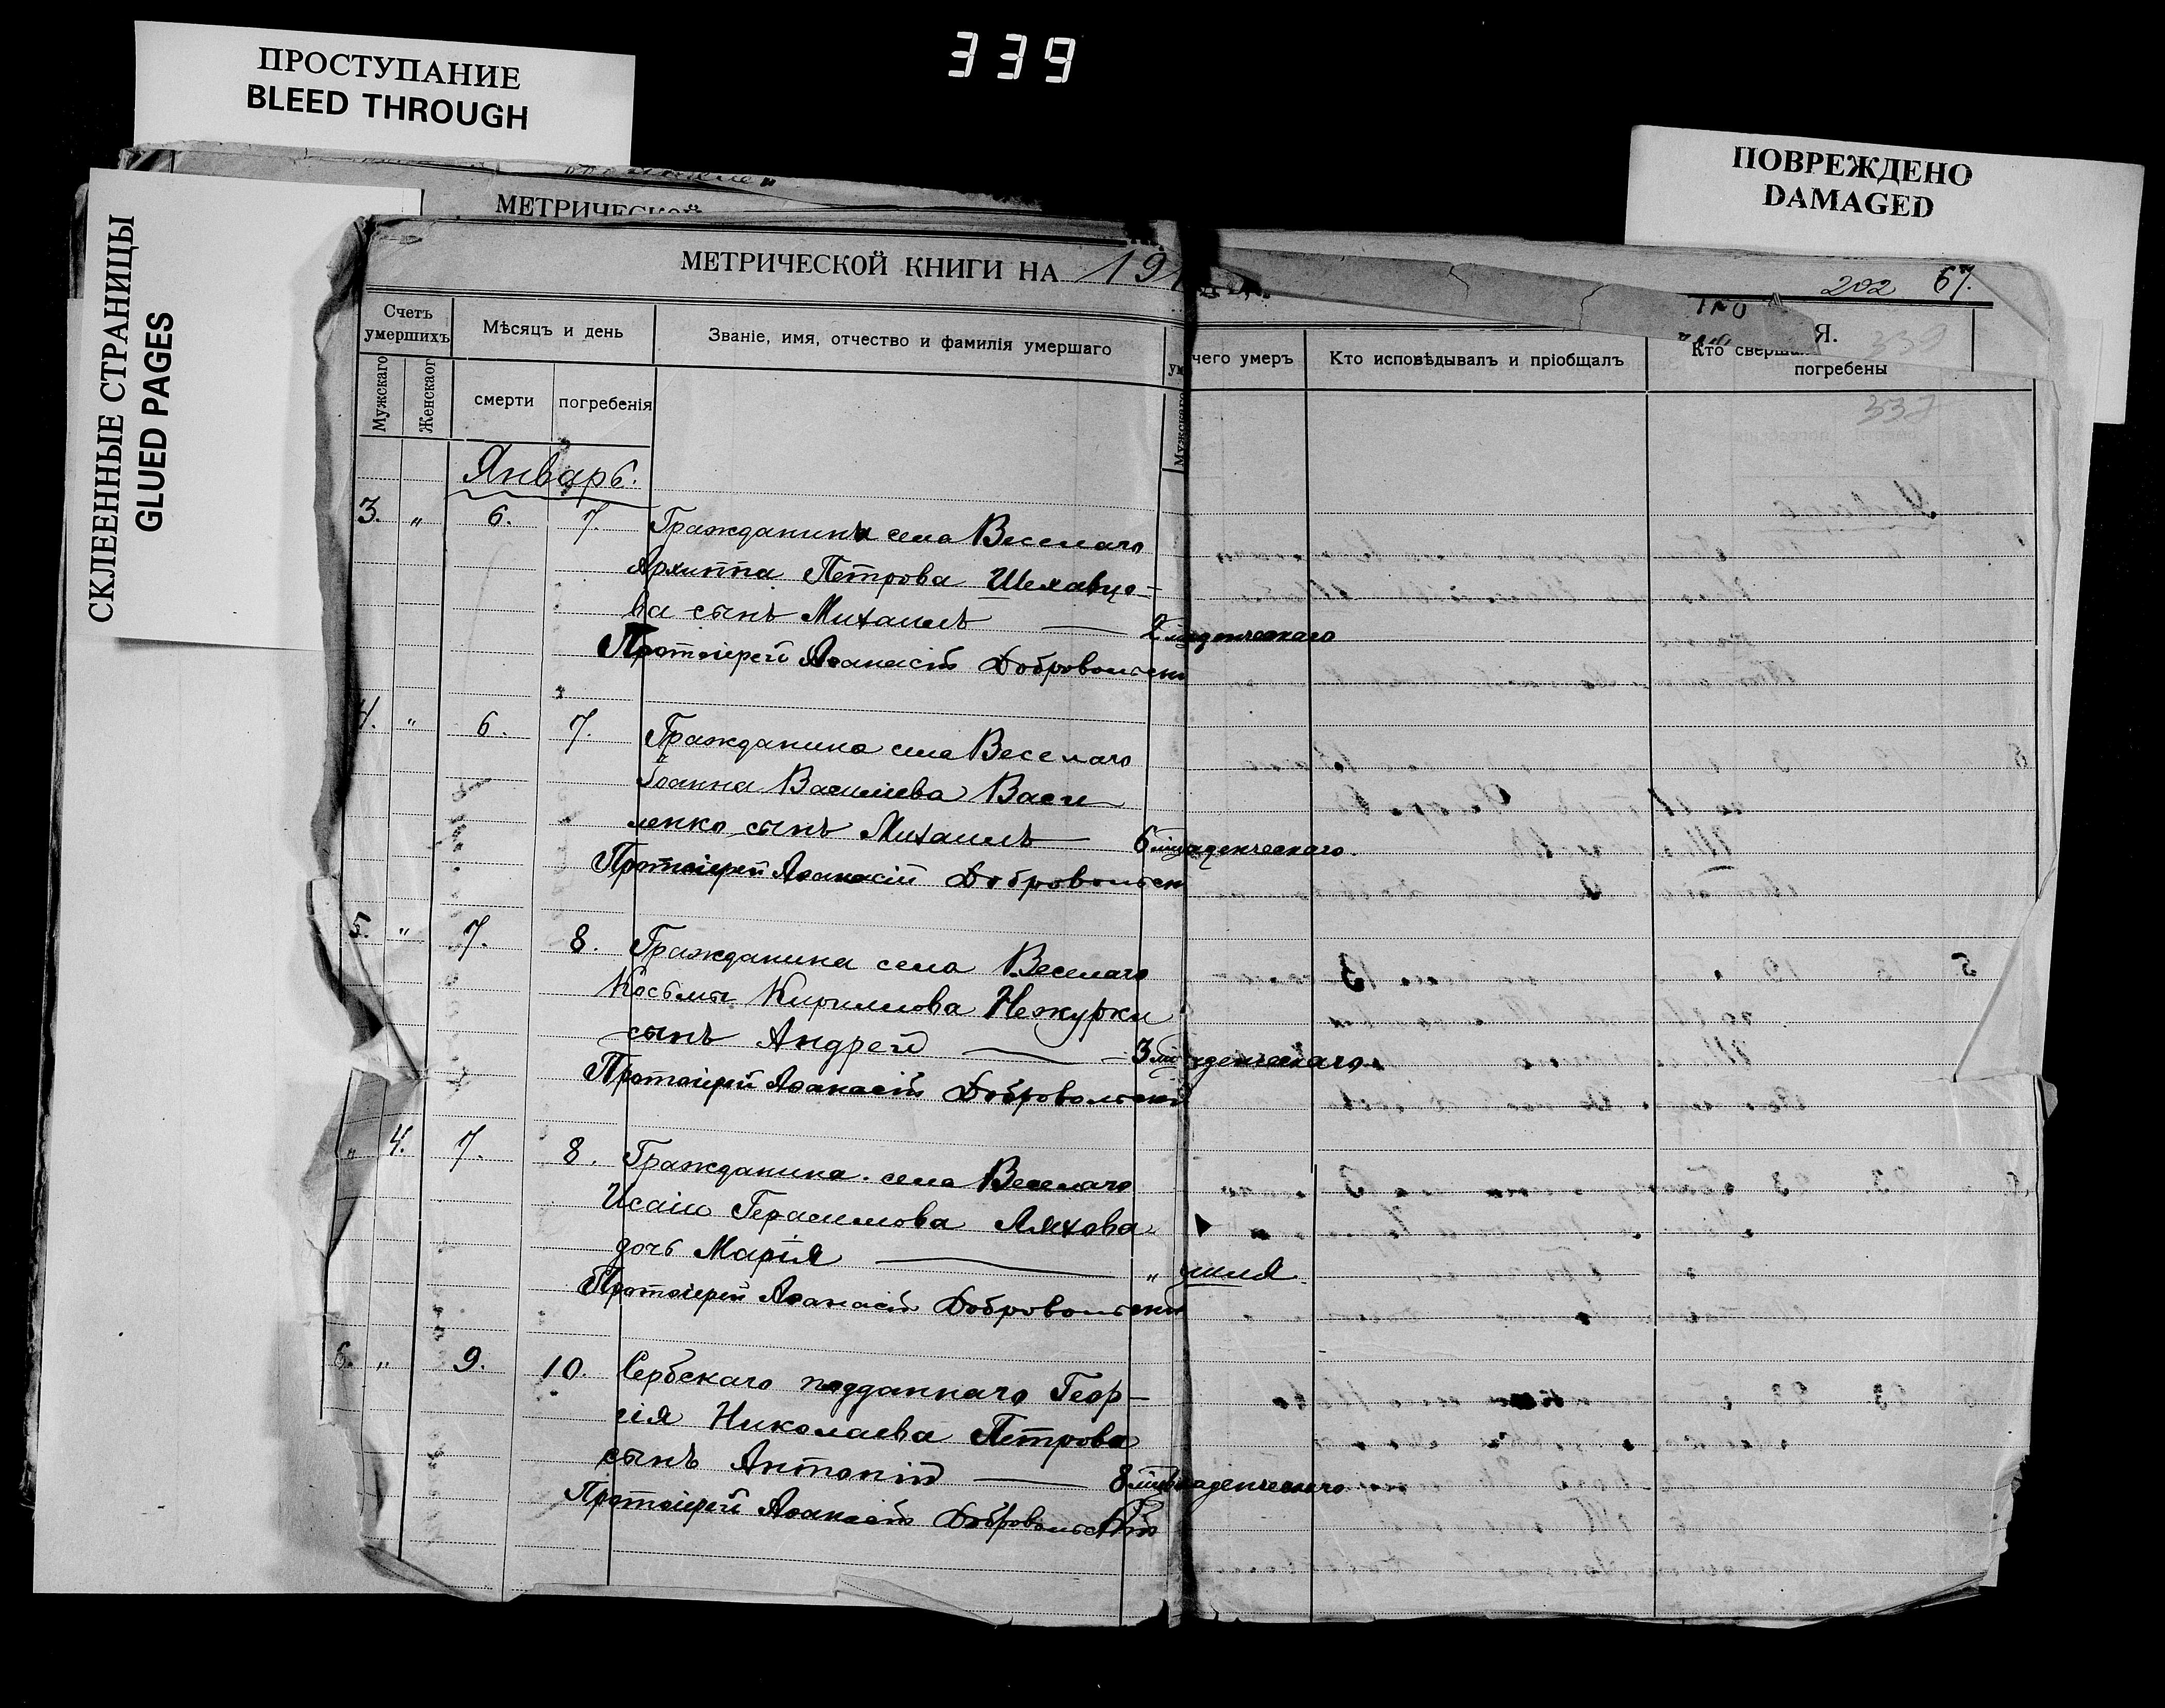 339
ПРОСТУПАНИЕ
BLEED THROUGH
ПОВРЕЖДЕНО
DAMAGED
СКЛЕЕННЫЕ СТРАНИЦЫ
GLUED PAGES
МЕТРИЧЕСКОЙ
МЕТРИЧЕСКОЙ КНИГИ НА 191
202 67.
Я. 339
Счетъ умершихъ
Мѣсяцъ и день
Званіе, имя, отчество и фамилія умершаго
чего умеръ
Кто исповѣдывалъ и пріобщалъ
Кто сверш
погребены
Мужскаго
Женскаог
смерти
погребенія
Мужскаго
337
Январь.
3. " 6. 7. Гражданина села Веселаго
Архиппа Петрова Шехавцо-
ва сынъ Михаилъ — 2 младенческаго
Протоіерей Аѳанасій Добровольскі
4. " 6. 7. Гражданина села Веселаго
Іоанна Василіева Васи
ленко сынъ Михаилъ — 6 младенческаго.
Протоіерей Аѳанасій Добровольск
5. " 7. 8. Гражданина села Веселаго
Косьмы Кириллова Нежурки
сынъ Андрей — 3 денческаго.
Протоіерей Аѳанасій Добровольскій
" 4. 7. 8. Гражданина села Веселаго
Исаіи Герасимова Ляхова
дочь Марія — "
Протоіерей Аѳанасій Добровольскій
6. " 9. 10. Сербскаго подданнаго Геор-
гія Николаева Петрова
сынъ Антоній — 8 младенческаго
Протоіерей Аѳанасій Добровольскій